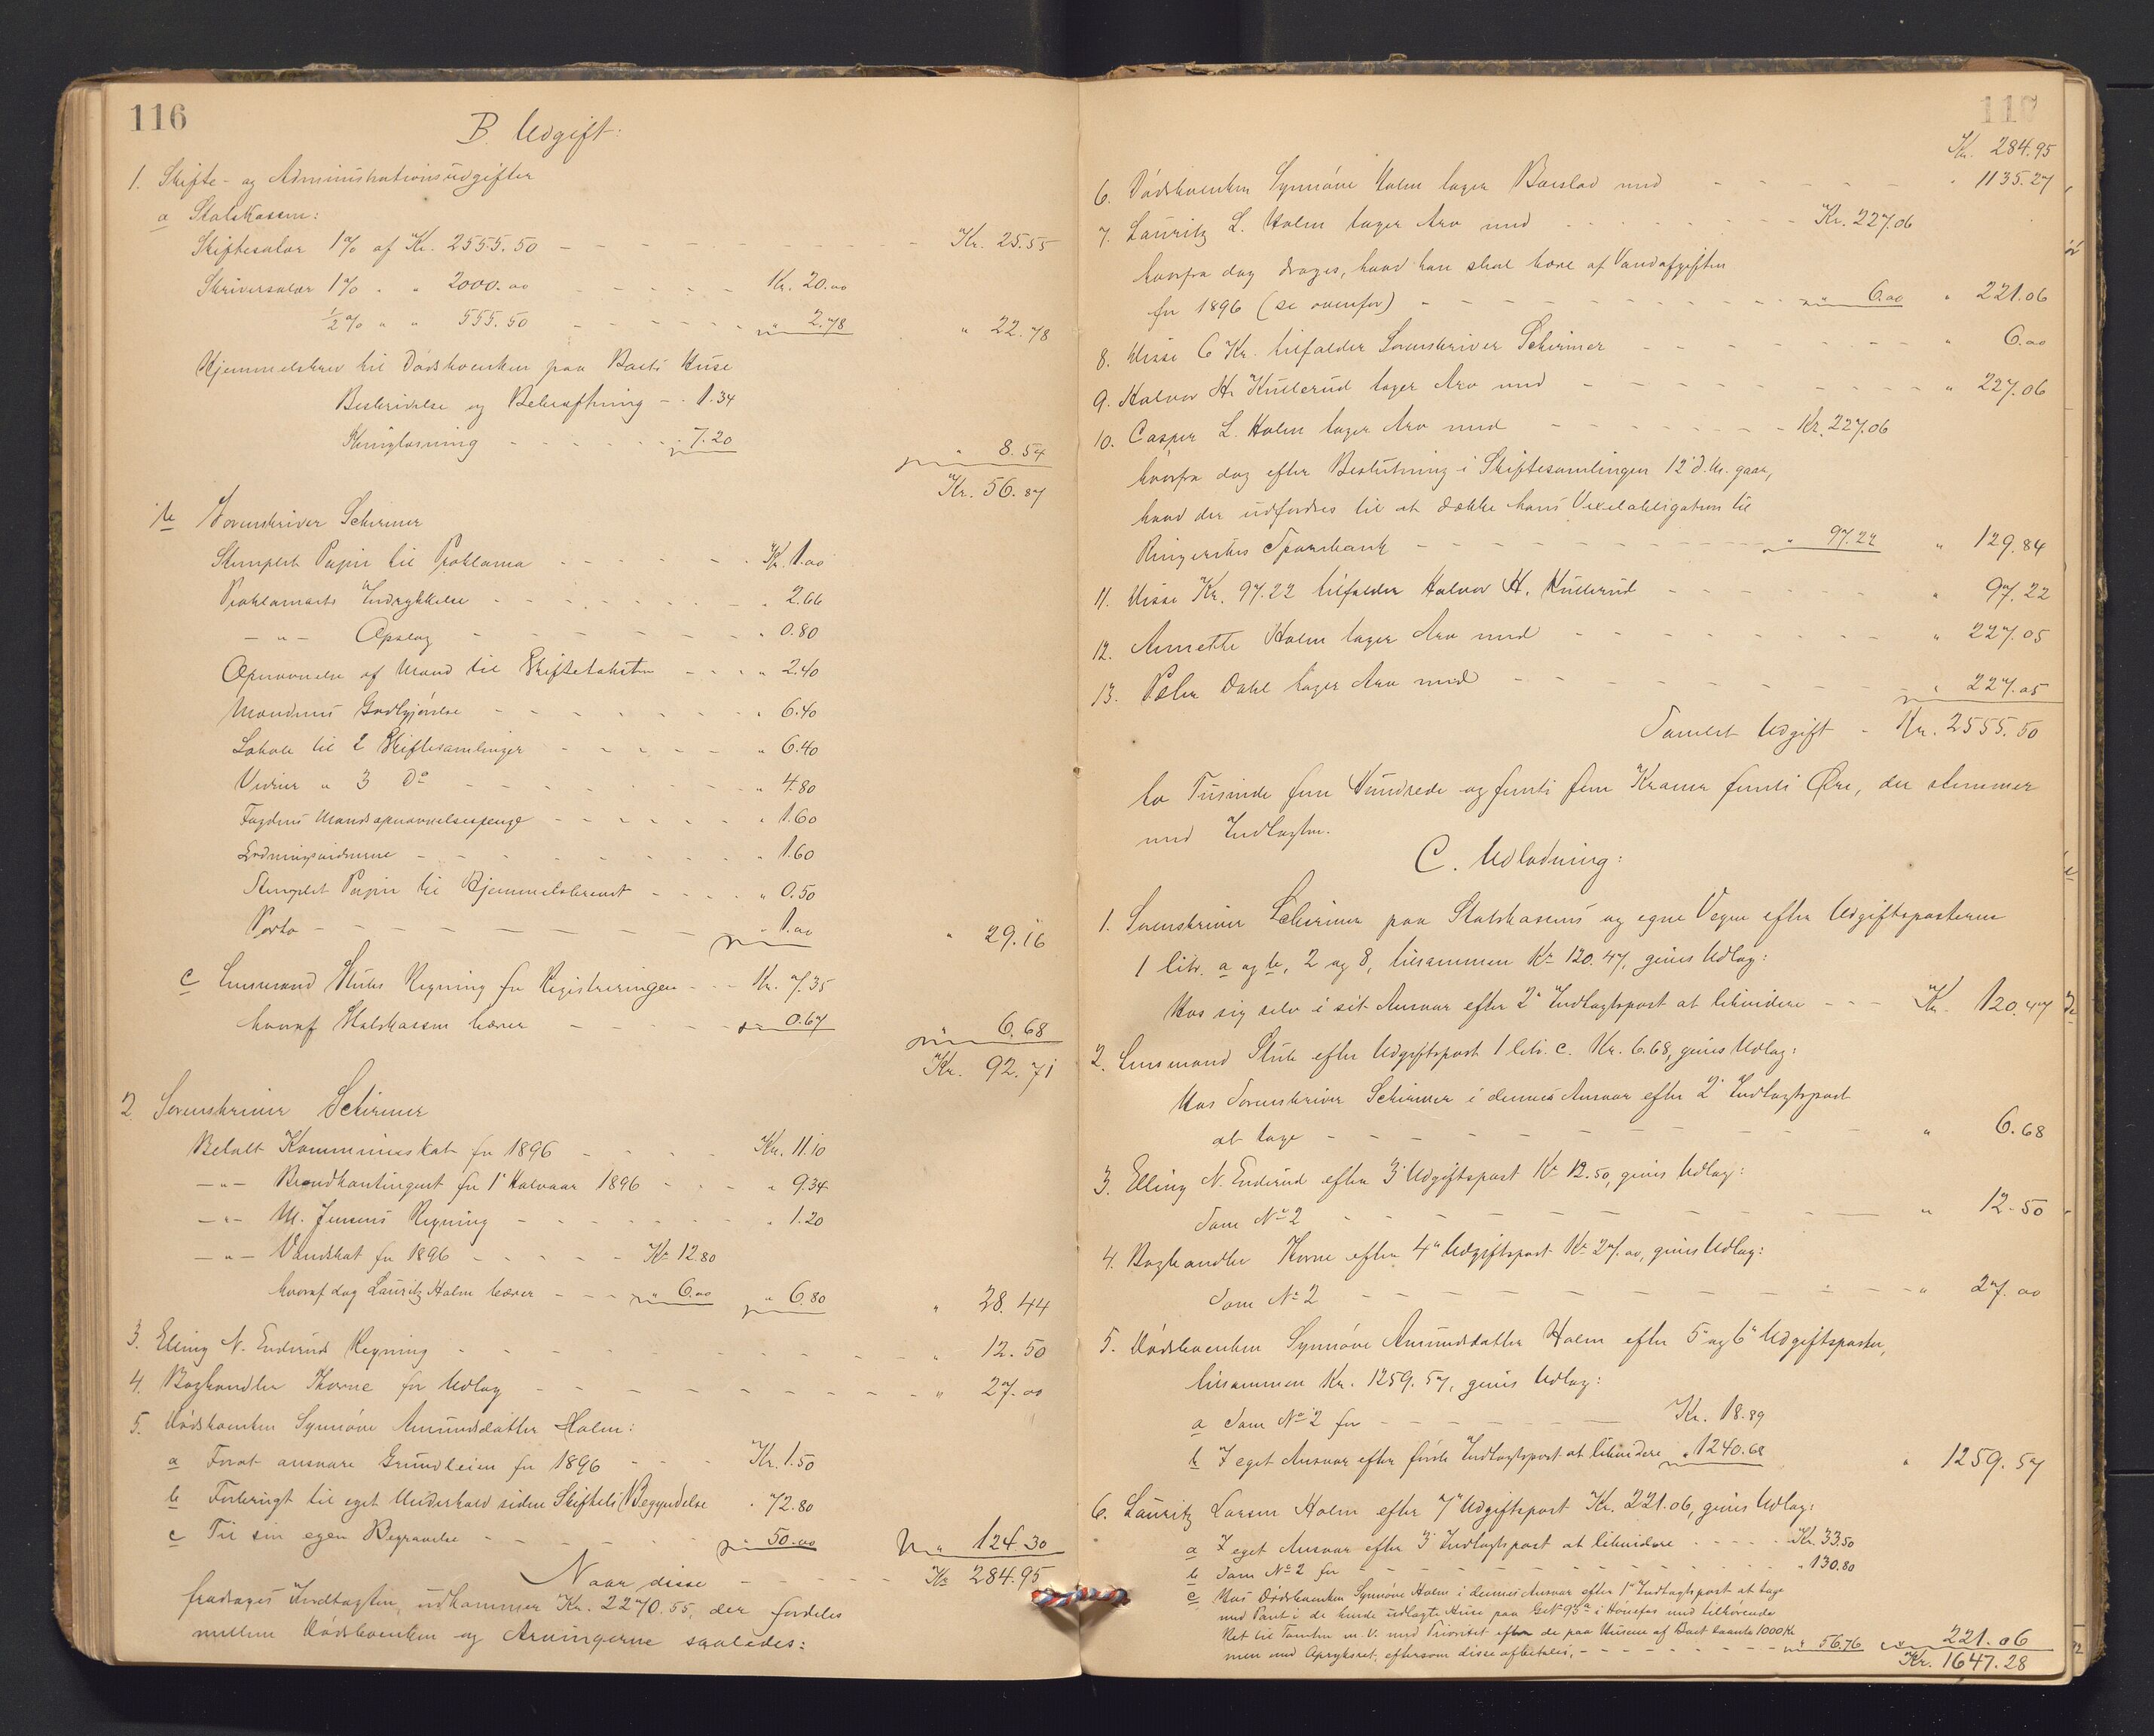 116
B. Udgift:
1. Skifte- og Administrationsudgifter
a Statskassen:
Skiftesalær 1% af Kr. 2555.50 - - - Kr. 25.55
Skriversalær 1% " " 2000.00 - - - Kr. 20.00
½% " " 555.50 - - - " 2.78 " 22.78
Hjemmelsbrev til Dødsboenken paa Boets Huse
Beskrivelse og Bekræftning - " 1.34
Thinglæsning - - - " 7.20 " 8.54
Kr. 56.87
b Sorenskriver Schirmer
Stemplet Papir til Proklama - - - Kr. 1.00
Proklamaets Indrykkelse - - - " 2.66
- " - Opslag - - - " 0.80
Opnævnelse af Mænd til Skiftetakster - - - " 2.40
Mændenes Godtgjørelse - - - " 6.40
Lokale til 2 Skiftesamlinger - - - " 6.40
Vidner " 3 Do - - - " 4.80
Fogdens Mandsopnævnelsespenge - - - " 1.60
Lodningsvidnerne - - - " 1.60
Stemplet Papir til Hjemmelsbrevet - - - " 0.50
Porto - - - " 1.00 " 29.16
c Lensmand Stubs Regning for Registreringen - - - Kr. 7.35
hvoraf Statskassen bærer - - - " 0.67 " 6.68
Kr. 92.71
2 Sorenskriver Schirmer
Betalt Kommuneskat for 1896 - - - Kr. 11.10
- " - Brandkontingent for 1ste Halvaar 1896 - - - " 9.34
- " - M. Jensens Regning - - - " 1.20
- " - Vandskat for 1896 - - - Kr. 12.80
hvoraf dog Lauritz Holm bærer - - - " 6.00 " 6.80 " 28.44
3. Elling N. Enderuds Regning - - - " 12.50
4. Boghandler Thorne for Udlæg - - - " 27.00
5. Dødsboenken Synnøve Amundsdatter Holm:
a For at ansvare Grundleien for 1896 - - - Kr. 1.50
b Forbrugt til eget Underhold siden Skiftets Begyndelse " 72.80
c Til sin egen Begravelse - - - " 50.00 " 124.30
Kr. 284.95
Naar disse - - -
fradrages Indtægten, udkommer Kr. 2270.55, der fordeles
mellem Dødsboenken og Arvingerne saaledes:
117
Kr. 284.95
6. Dødsboenken Synnøve Holm tager Boeslod med - - - " 1135.27
7. Lauritz L. Holm tager Arv med - - - Kr. 227.06
hvorfra dog drages, hvad han skal bære af Vandafgiften
for 1896 (se ovenfor) - - - " 6.00 " 221.06
8. Disse 6 Kr. tilfalder Sorenskriver Schirmer - - - " 6.00
9. Halvor H. Kullerud tager Arv med - - - " 227.06
10. Casper L. Holm tager Arv med - - - Kr. 227.06
hvorfra dog efter Beslutning i Skiftesamlingen 12 d. M. gaar,
hvad der udfordres til at dække hans Vexelobligation til
Ringerikes Sparebank - - - " 97.22 " 129.84
11. Disse Kr. 97.22 tilfalder Halvor H. Kullerud - - - " 97.22
12. Annette Holm tager Arv med - - - " 227.05
13. Peter Dahl tager Arv med - - - " 227.05
Samlet Udgift - Kr. 2555.50
to Tusinde fem Hundrede og femti fem Kroner femti Øre, der stemmer
med Indtægten.
C. Udlodning:
1. Sorenskriver Schirmer paa Statskassens og egne Vegne efter Udgiftsposterne
1 litr. a og b, 2 og 8, tilsammen Kr. 120.47, gives Udlæg:
Hos sig selv i sit Ansvar efter 2den Indtægtspost at likvidere - - - Kr. 120.47
2. Lensmand Stub efter Udgiftspost 1 litr. c. Kr. 6.68, gives Udlæg:
Hos Sorenskriver Schirmer i dennes Ansvar efter 2 Indtægtspost
at tage - - - " 6.68
3. Elling N. Enderud efter 3 Udgiftspost Kr. 12.50, gives Udlæg:
Som No 2 - - - " 12.50
4. Boghandler Thorne efter 4de Udgiftspost Kr. 27.00, gives Udlæg:
Som No 2 - - - " 27.00
5. Dødsboenken Synnøve Amundsdatter Holm efter 5te og 6te Udgiftsposter,
tilsammen Kr. 1259.57, gives Udlæg:
a Som No 2 for - - - Kr. 18.89
b I eget Ansvar efter første Indtægtspost at likvidere " 1240.68 " 1259.57
6. Lauritz Larsen Holm efter 7de Udgiftspost Kr. 221.06, gives Udlæg:
a I eget Ansvar efter 3 Indtægtspost at likvidere - - - Kr. 33.50
b Som No 2 for - - - " 130.80
c Hos Dødsboenken Synnøve Holm i dennes Ansvar efter 1ste Indtægtspost at tage
med Pant i de hende udlagte Huse paa G.No 93a i Hønefos med tilhørende
Ret til Tomten m. V. med Prioritet efter de paa Husene af Boet laante 1000 Kr.
men med Opryksret, eftersom disse afbetales, - - - " 56.76 " 221.06
Kr. 1647.28